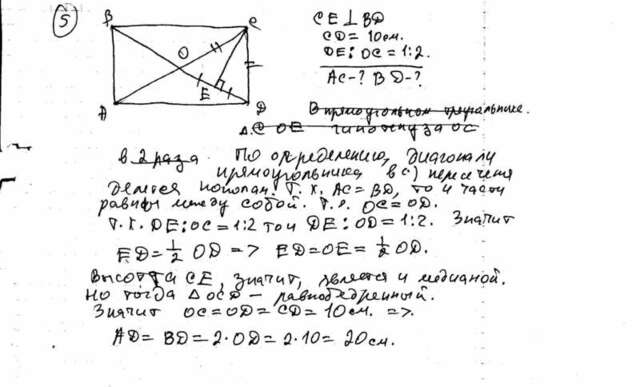 5
B C
O
E
A D
CE ⊥ BD
CD = 10см.
DE : OC = 1:2.
AC-? BD-?
В прямоугольном треугольнике.
Δ COE гипотенуза OC
в 2 раза. По определению, диагонали
прямоугольника в (·) пересечения
делятся пополам. Т.к. AC = BD, то и части
равны между собой. Т.е. OC = OD.
Т.к. DE:OC = 1:2 то и DE:OD = 1:2. Значит
ED = 1/2 OD => ED = OE = 1/2 OD.
Высота CE, значит, является и медианой.
Но тогда Δ OCD – равнобедренный.
Значит OC = OD = CD = 10см. =>
AD = BD = 2·OD = 2·10 = 20см.